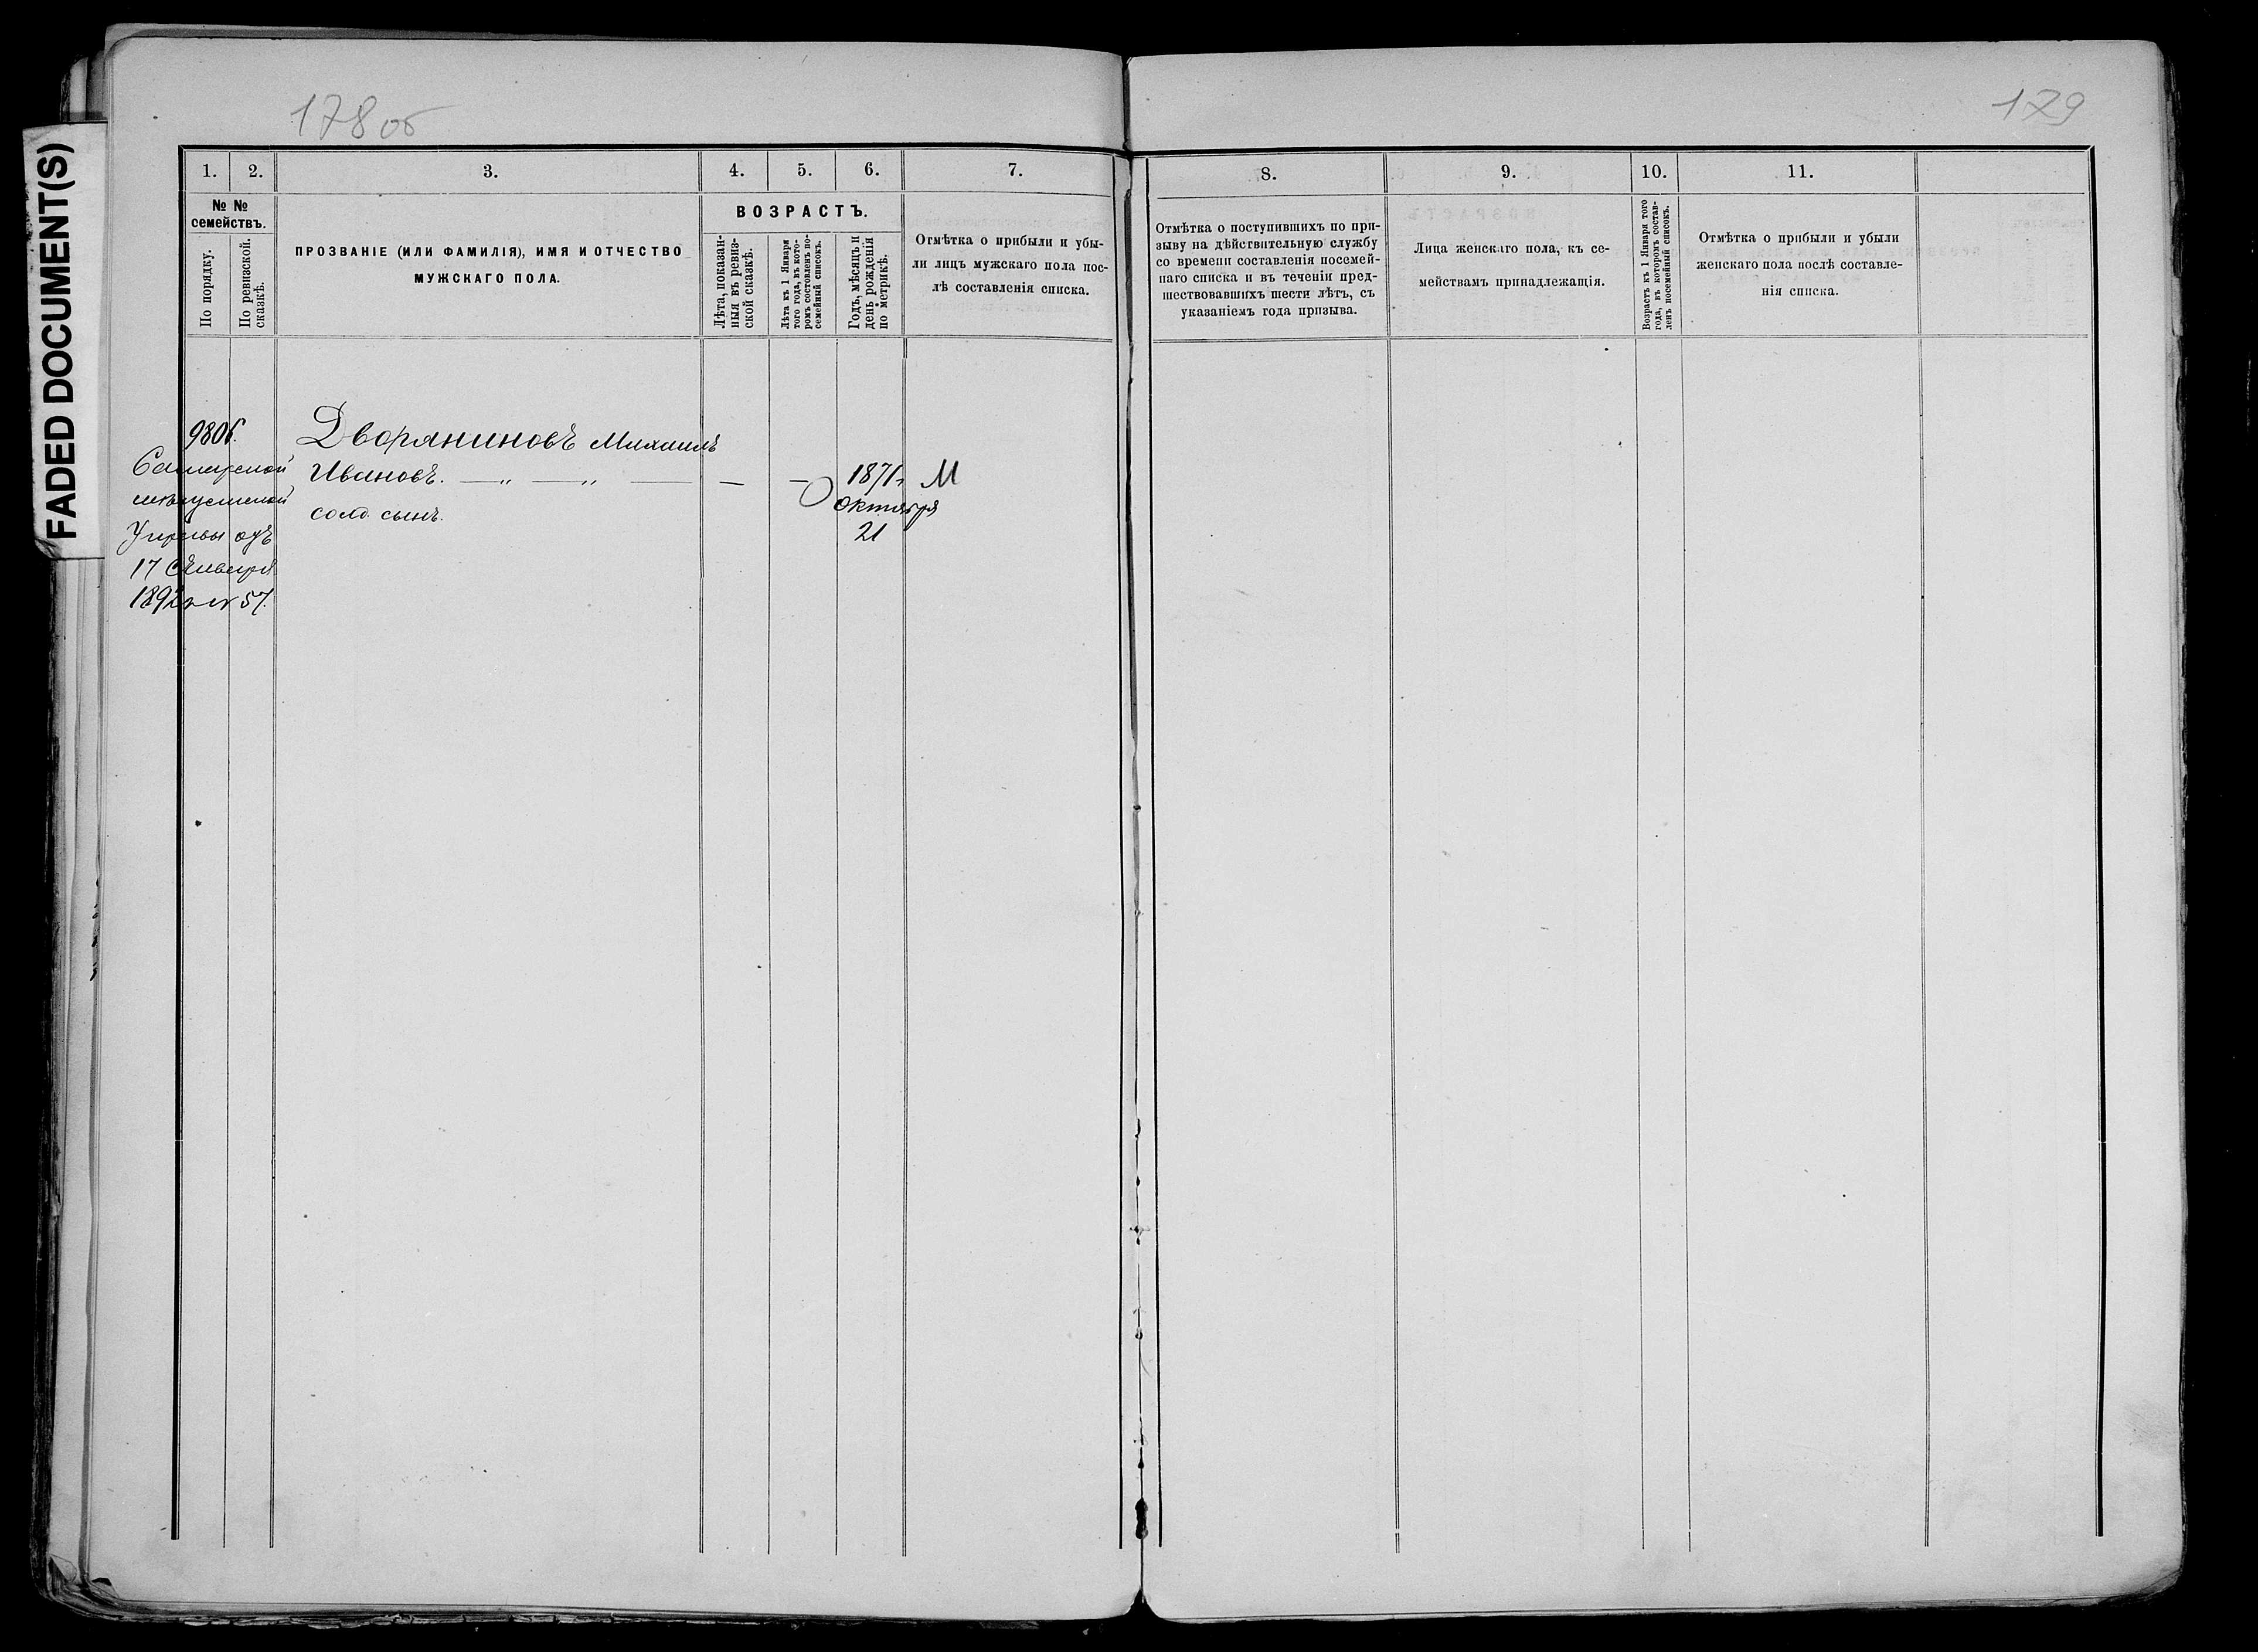 FADED DOCUMENT(S)
178об
129
1.
2.
3.
4.
5.
6.
7.
8.
9.
10.
11.
№ №
семействъ.
По порядку.
По ревизской
сказкѣ.
ПРОЗВАНІЕ (ИЛИ ФАМИЛІЯ), ИМЯ И ОТЧЕСТВО
МУЖСКАГО ПОЛА.
ВОЗРАСТЪ.
Лѣта, показан-
ныя въ ревиз-
ской сказкѣ.
Лѣта къ 1 Января
того года, въ кото-
ромъ состовленъ по-
семейный списокъ.
Годъ, мѣсяцъ и
день рожденія
по метрикѣ.
Отмѣтка о прибыли и убы-
ли лицъ мужскаго пола пос-
лѣ составленія списка.
Отмѣтка о поступившихъ по при-
зыву на дѣйствительную службу
со времени составленія посемей-
наго списка и въ теченіи пред-
шествовавшихъ шести лѣтъ, съ
указаніемъ года призыва.
Лица женскаго пола, къ се-
мействамъ принадлежащія.
Возрастъ къ 1 Января того
года, въ которомъ состав-
ленъ посемейный списокъ.
Отмѣтка о прибыли и убыли
женскаго пола послѣ составле-
нія списка.
980б.
Самарской
мѣщанской
Управы отъ
17 Января
1892 г № 57.
Дворяниновъ Михаилъ
Ивановъ. — „ — „ — — —
солд. сынъ.
1871 г
Октября
21
М